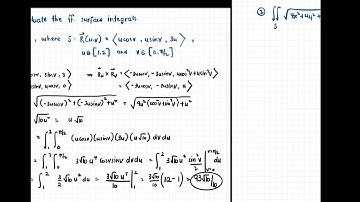 luate the ff surface integrals.
, where S: R(u,v) = ⟨ucosv, usinv, 3u⟩
u∈[1,2] and v∈[0, π/2]
sinv, 3⟩ ⇒ Ru × Rv = ⟨-3ucosv, -3usinv, ucos²v+usin²v⟩
cosv, 0⟩ = ⟨-3ucosv, -3usinv, u⟩
√(-3ucosv)²+(-3usinv)²+u² = √9u²(cos²v+sin²v)+u²
√10u² = u√10
= ∫₁² ∫₀^π/2 (ucosv)(usinv)(3u)(u√10) dv du
= ∫₁² ∫₀^π/2 3√10 u⁴ cosv sinv dv du = ∫₁² 3√10 u⁴ sin²v/2 |v=0 v=π/2 du
= ∫₁² 3/2 √10 u⁴ du = 3√10 u⁵/10 |₁² = 3√10/10 (32-1) = 93√10/10
② ∬ S